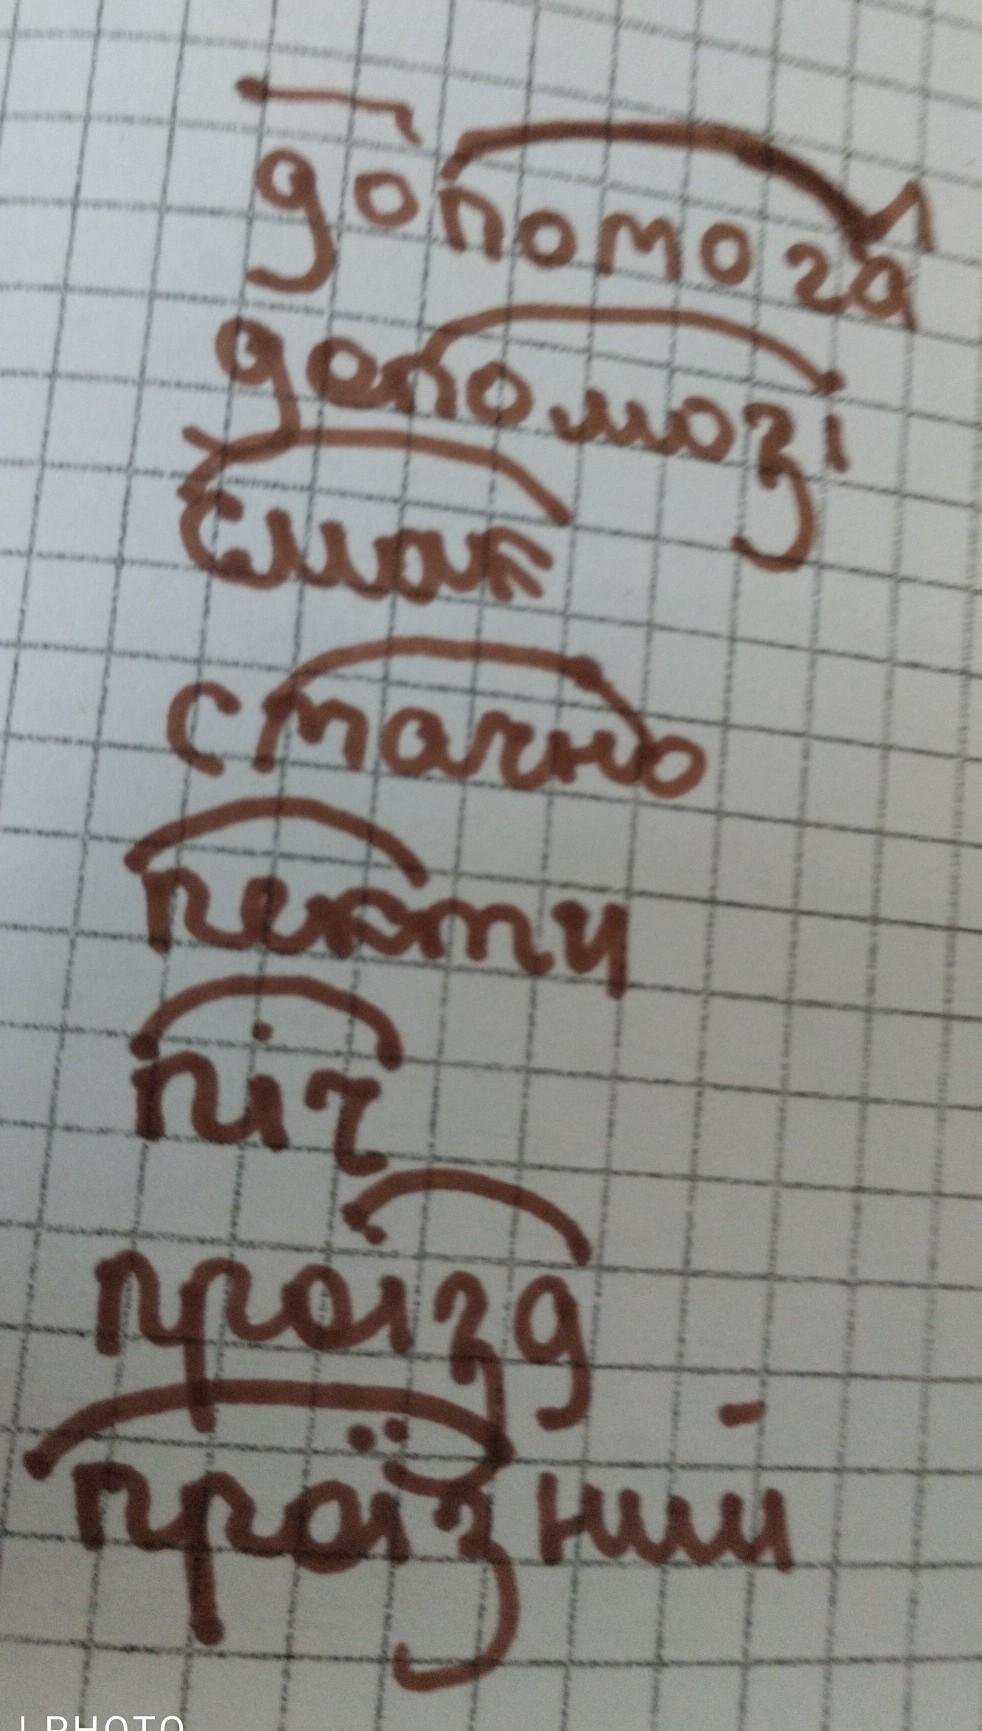 допомога
допомозі
смак
стачно
пекти
піч
проїзд
проїзний
PHOTO